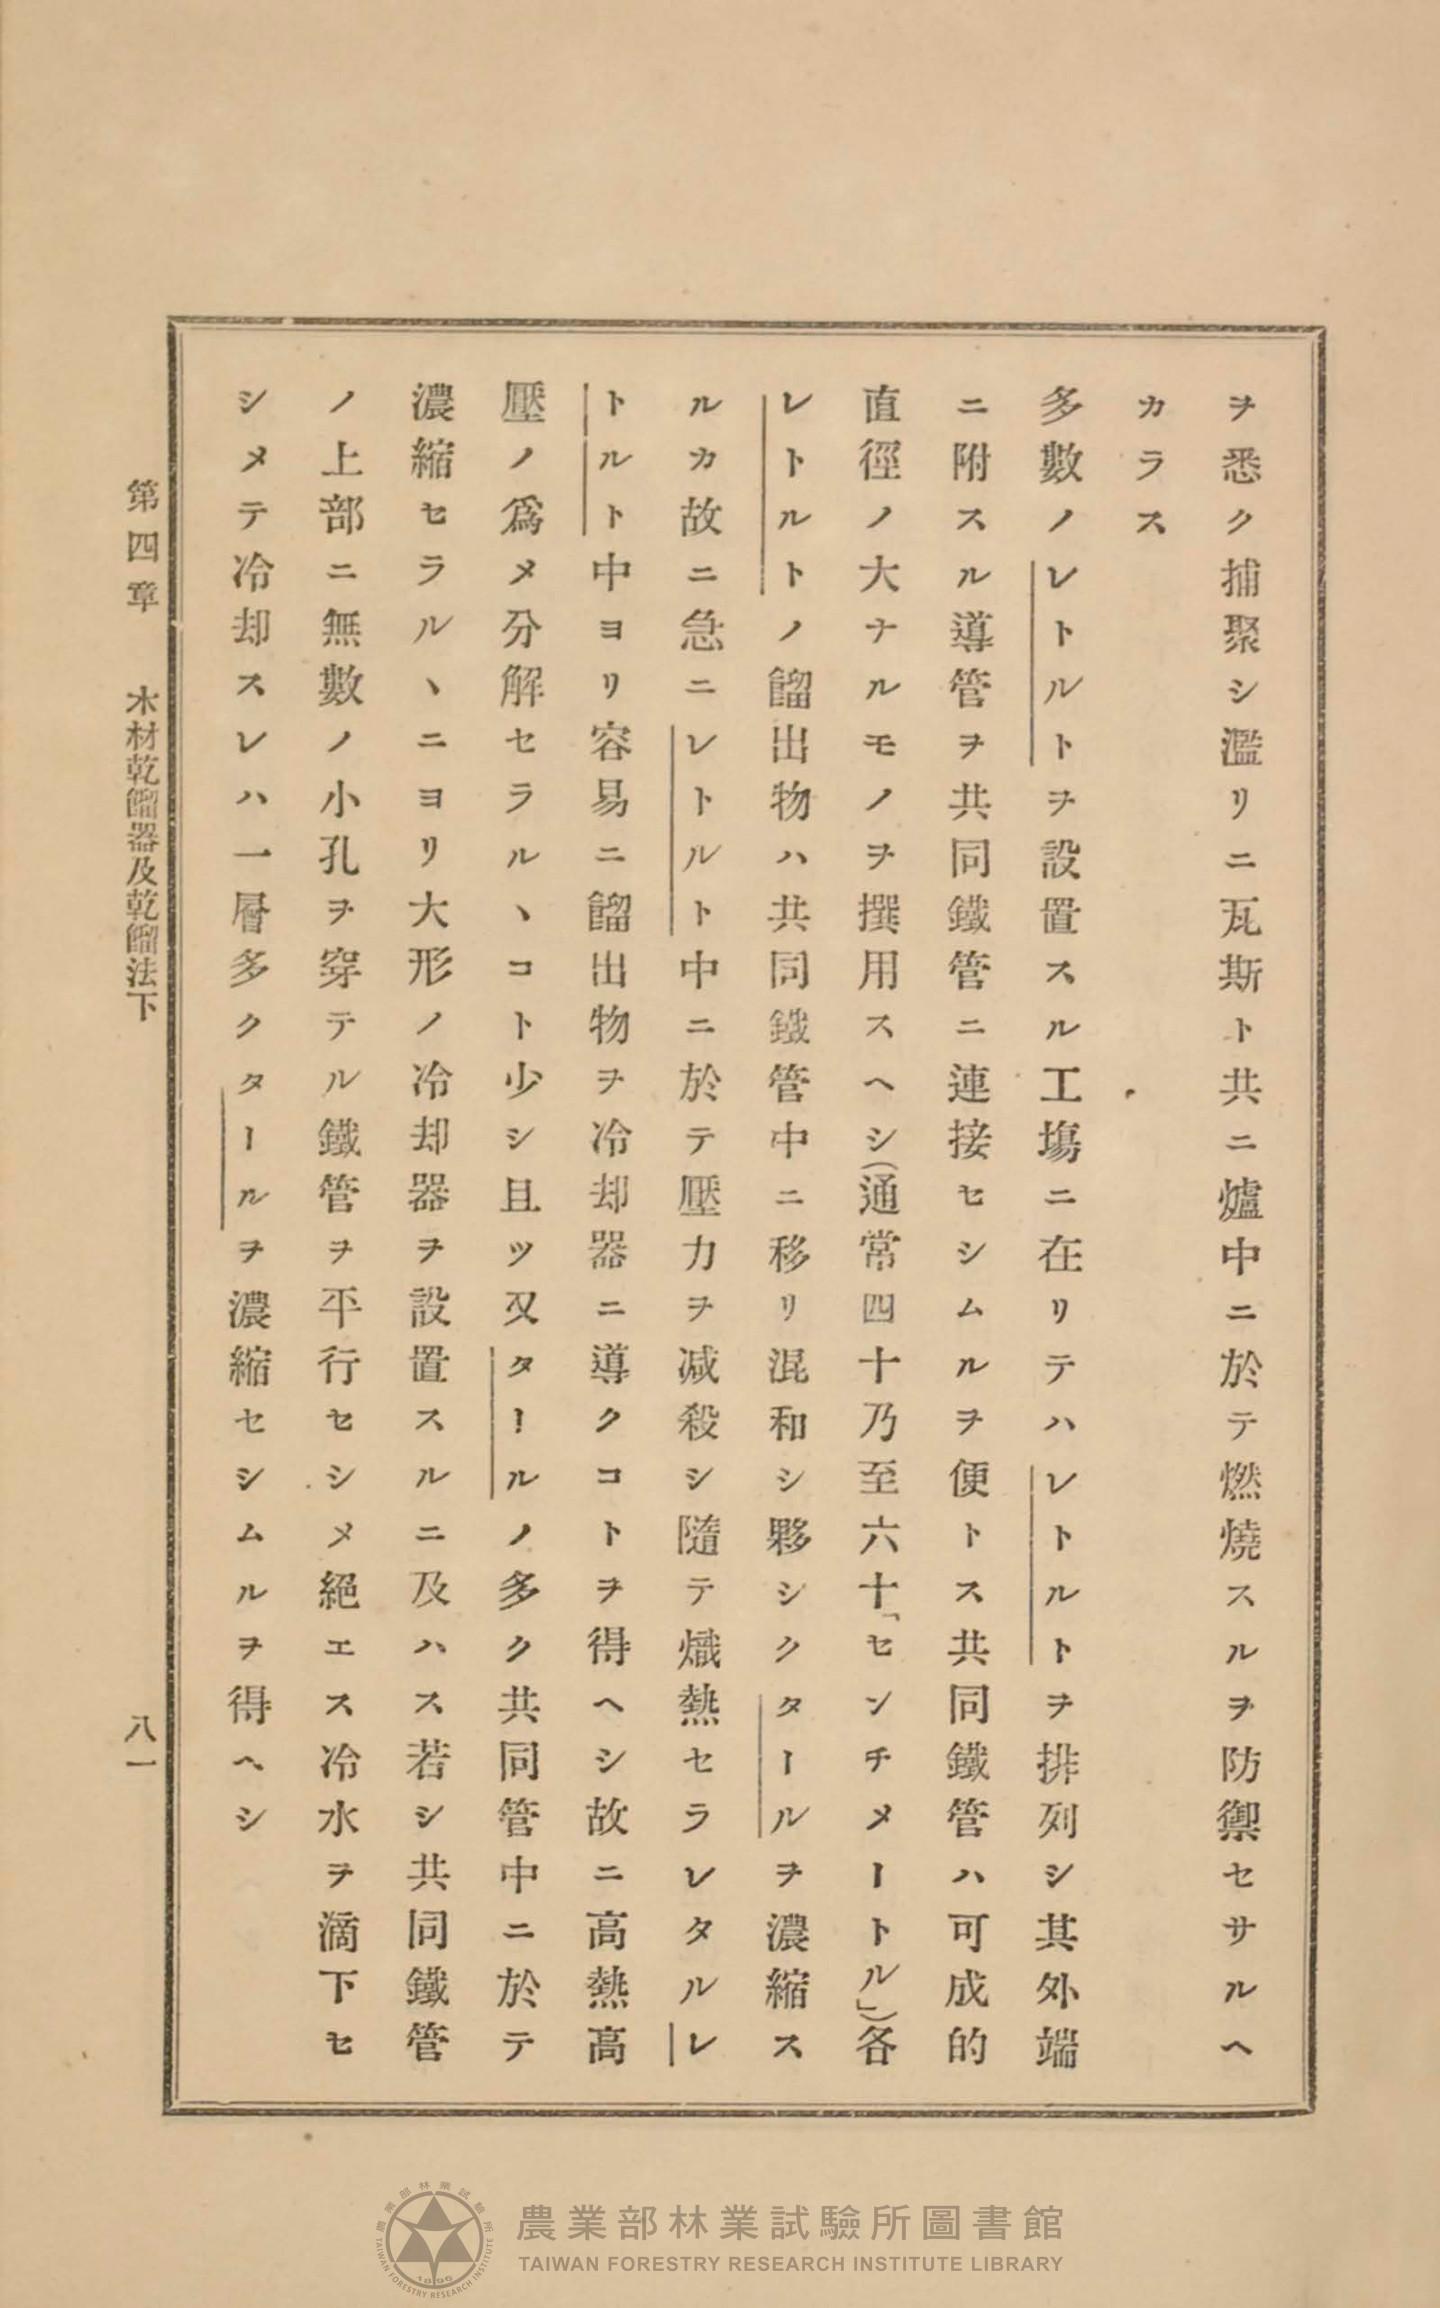 ヲ悉ク捕聚シ濫リニ瓦斯ト共ニ爐中ニ於テ燃燒スルヲ防禦セサルヘ
カラス
多數ノレトルトヲ設置スル工塲ニ在リテハレトルトヲ排列シ其外端
ニ附スル導管ヲ共同鐵管ニ連接セシムルヲ便トス共同鐵管ハ可成的
直徑ノ大ナルモノヲ撰用スヘシ(通常四十乃至六十「センチメートル」)各
レトルトノ餾出物ハ共同鐵管中ニ移リ混和シ夥シクタールヲ濃縮ス
ルカ故ニ急ニレトルト中ニ於テ壓力ヲ减殺シ隨テ熾熱セラレタルレ
トルト中ヨリ容易ニ餾出物ヲ冷却器ニ導クコトヲ得ヘシ故ニ高熱高
壓ノ爲メ分解セラルヽコト少シ且ツ又タールノ多ク共同管中ニ於テ
濃縮セラルヽニヨリ大形ノ冷却器ヲ設置スルニ及ハス若シ共同鐵管
ノ上部ニ無數ノ小孔ヲ穿テル鐵管ヲ平行セシメ絕エス冷水ヲ滴下セ
シメテ冷却スレハ一層多クタールヲ濃縮セシムルヲ得ヘシ
第四章 木材乾餾器及乾餾法下 八一
農業部林業試驗所圖書館
TAIWAN FORESTRY RESEARCH INSTITUTE LIBRARY
農業部林業試驗所
TAIWAN FORESTRY RESEARCH INSTITUTE
1896